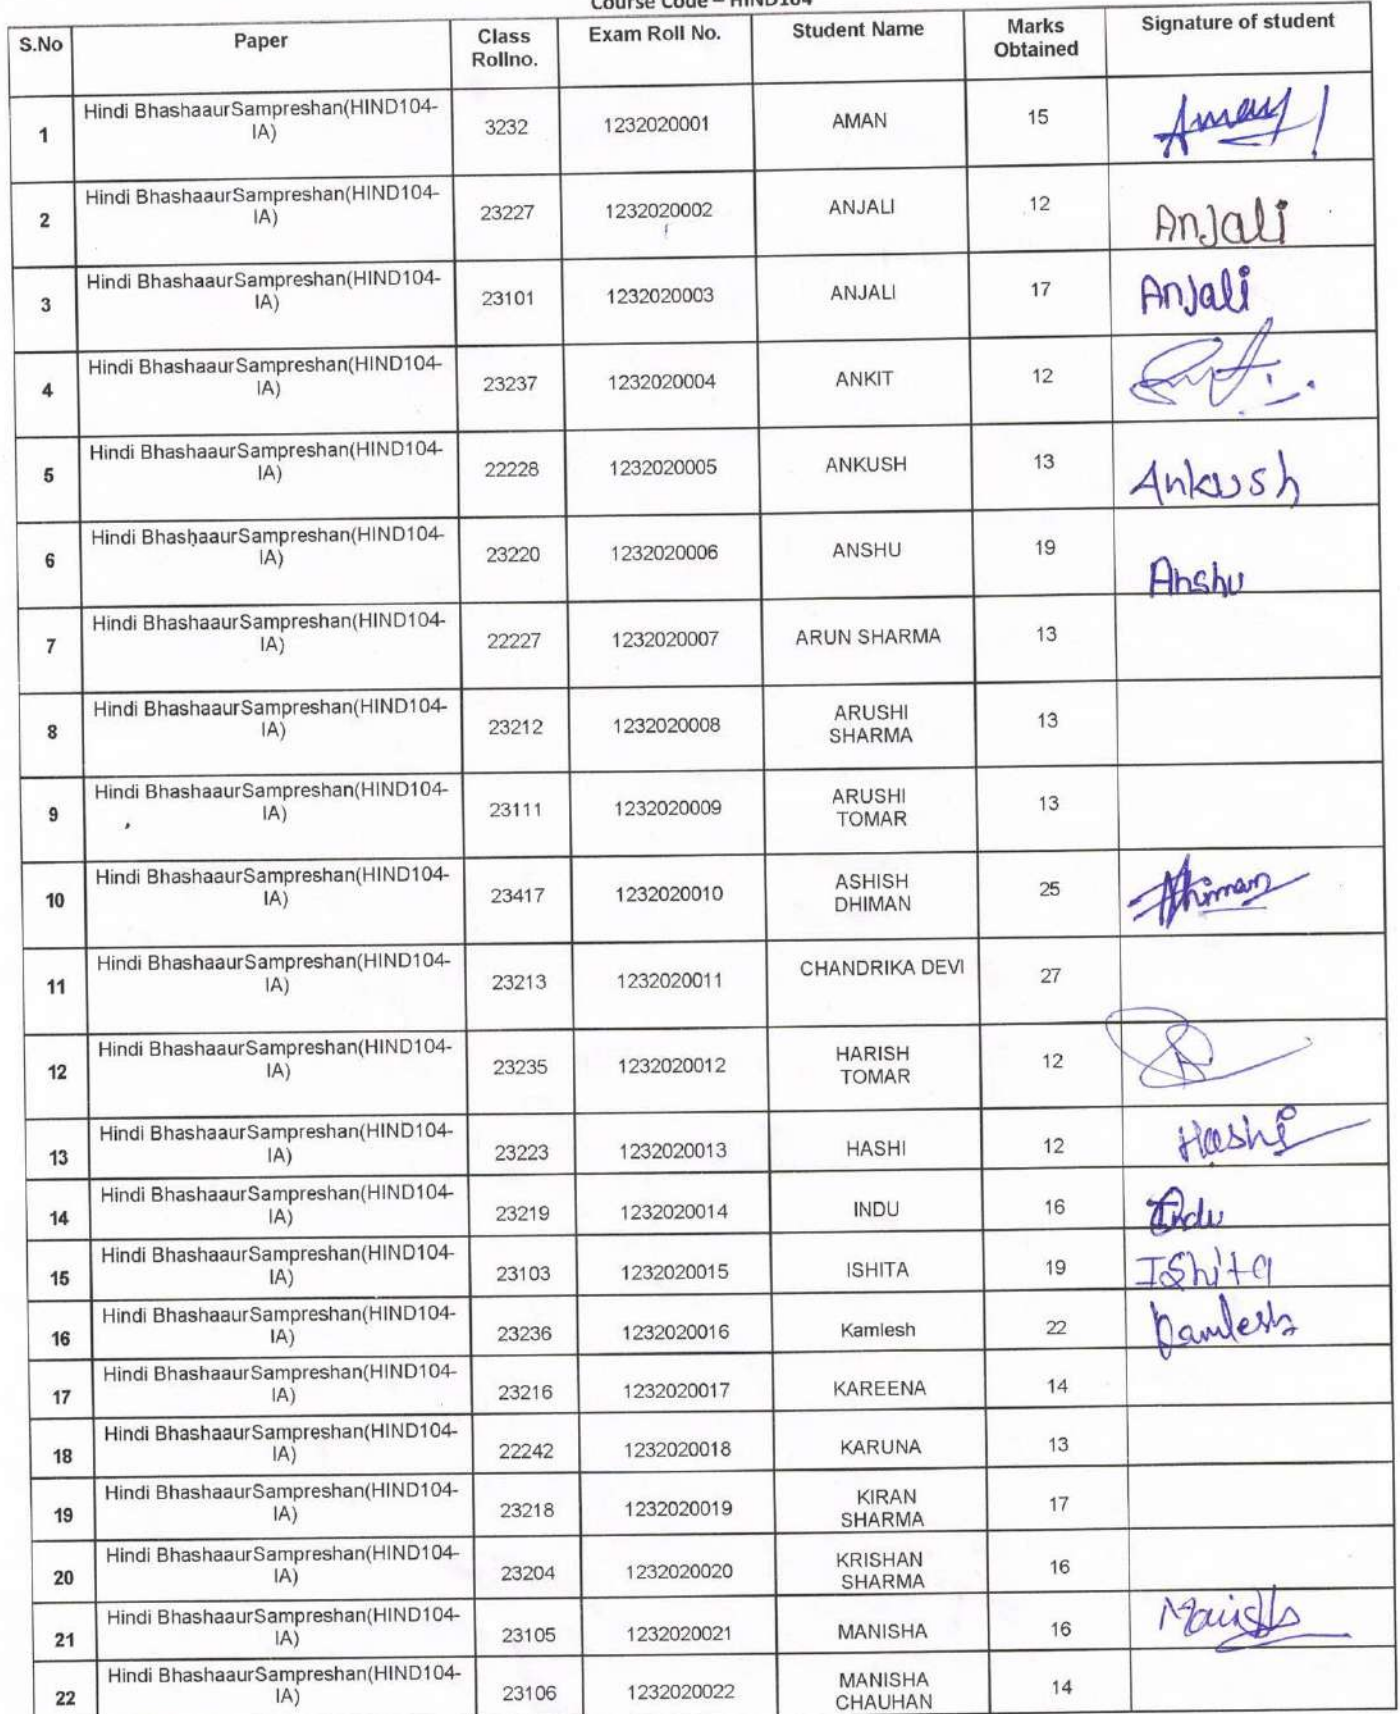 Course Code – HIND104
S.No Paper Class Rollno. Exam Roll No. Student Name Marks Obtained Signature of student
1 Hindi BhashaaurSampreshan(HIND104-IA) 3232 1232020001 AMAN 15 Aman
2 Hindi BhashaaurSampreshan(HIND104-IA) 23227 1232020002 ANJALI 12 Anjali
3 Hindi BhashaaurSampreshan(HIND104-IA) 23101 1232020003 ANJALI 17 Anjali
4 Hindi BhashaaurSampreshan(HIND104-IA) 23237 1232020004 ANKIT 12
5 Hindi BhashaaurSampreshan(HIND104-IA) 22228 1232020005 ANKUSH 13 Ankush
6 Hindi BhashaaurSampreshan(HIND104-IA) 23220 1232020006 ANSHU 19 Anshu
7 Hindi BhashaaurSampreshan(HIND104-IA) 22227 1232020007 ARUN SHARMA 13
8 Hindi BhashaaurSampreshan(HIND104-IA) 23212 1232020008 ARUSHI SHARMA 13
9 Hindi BhashaaurSampreshan(HIND104-IA) 23111 1232020009 ARUSHI TOMAR 13
10 Hindi BhashaaurSampreshan(HIND104-IA) 23417 1232020010 ASHISH DHIMAN 25 Dhiman
11 Hindi BhashaaurSampreshan(HIND104-IA) 23213 1232020011 CHANDRIKA DEVI 27
12 Hindi BhashaaurSampreshan(HIND104-IA) 23235 1232020012 HARISH TOMAR 12
13 Hindi BhashaaurSampreshan(HIND104-IA) 23223 1232020013 HASHI 12 Hashi
14 Hindi BhashaaurSampreshan(HIND104-IA) 23219 1232020014 INDU 16 Indu
15 Hindi BhashaaurSampreshan(HIND104-IA) 23103 1232020015 ISHITA 19 IShita
16 Hindi BhashaaurSampreshan(HIND104-IA) 23236 1232020016 Kamlesh 22 Kamlesh
17 Hindi BhashaaurSampreshan(HIND104-IA) 23216 1232020017 KAREENA 14
18 Hindi BhashaaurSampreshan(HIND104-IA) 22242 1232020018 KARUNA 13
19 Hindi BhashaaurSampreshan(HIND104-IA) 23218 1232020019 KIRAN SHARMA 17
20 Hindi BhashaaurSampreshan(HIND104-IA) 23204 1232020020 KRISHAN SHARMA 16
21 Hindi BhashaaurSampreshan(HIND104-IA) 23105 1232020021 MANISHA 16 Manisha
22 Hindi BhashaaurSampreshan(HIND104-IA) 23106 1232020022 MANISHA CHAUHAN 14